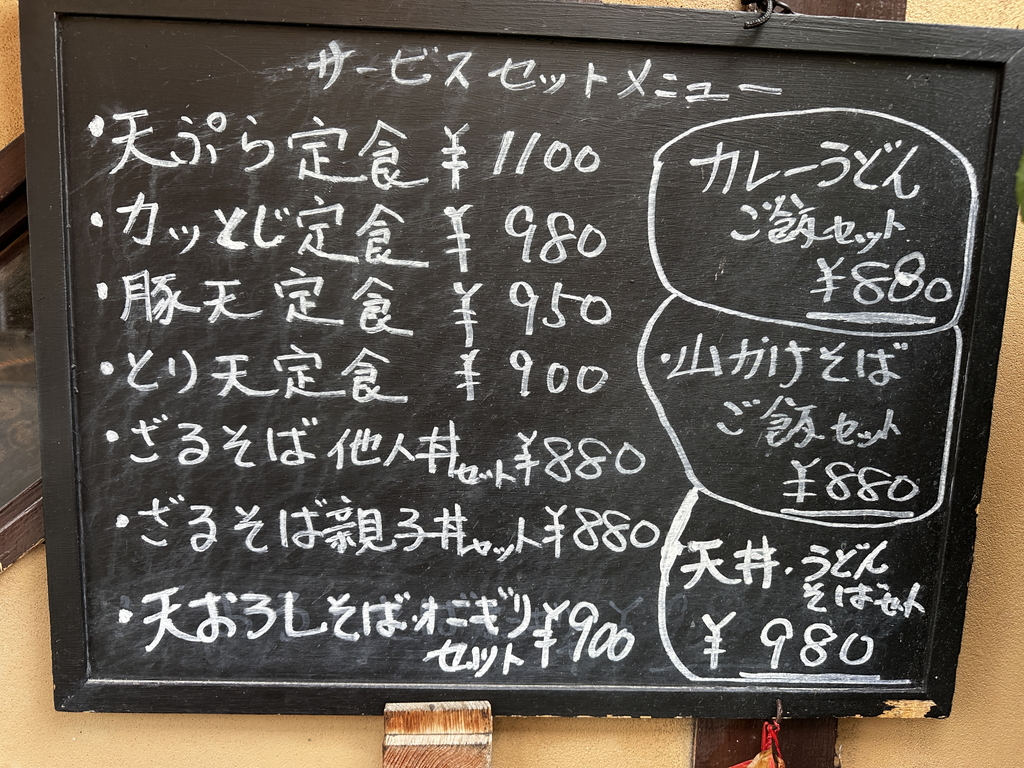 サービスセットメニュー
・天ぷら定食 ¥1100
・カツとじ定食 ¥980
・豚天定食 ¥950
・とり天定食 ¥900
・ざるそば他人丼セット¥880
・ざるそば親子丼セット¥880
・天おろしそば・おにぎり
セット ¥900
カレーうどん
ご飯セット
¥880
・山かけそば
ご飯セット
¥880
・天丼・うどん
そばセット
¥980